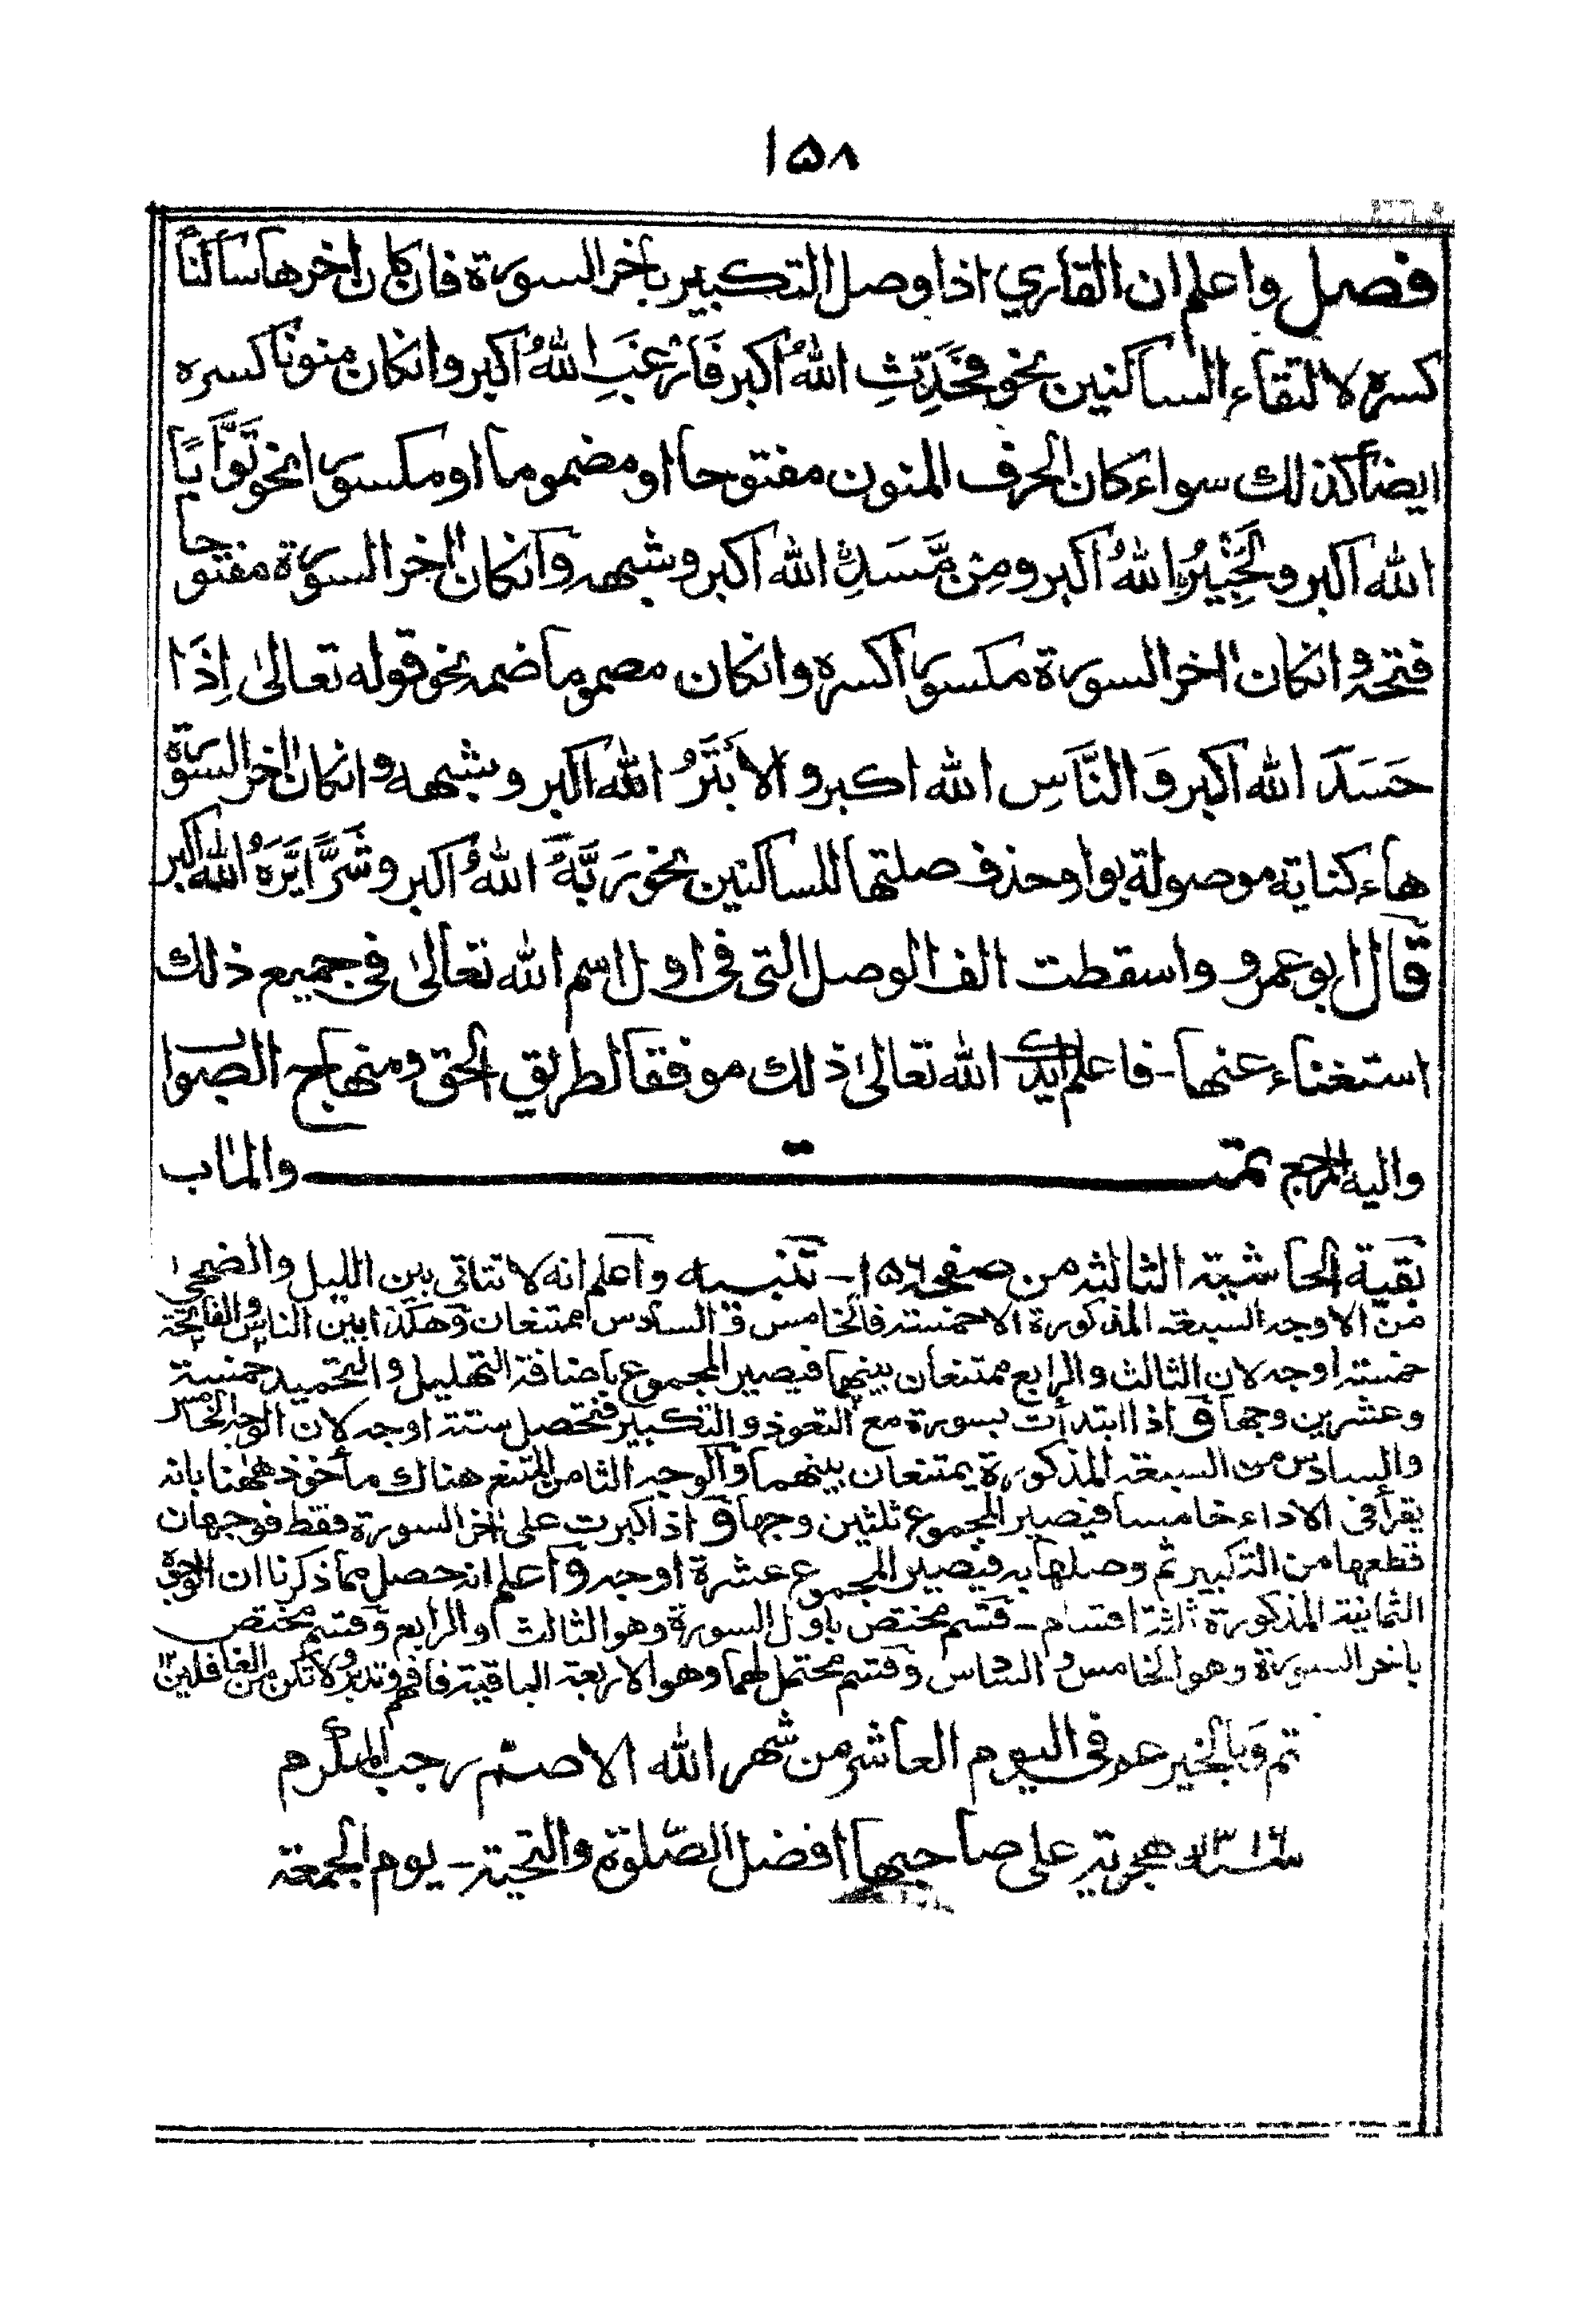 ۱۵۸
فصل واعلم ان القاري اذا وصل التكبير باخر السورة فان كان اخرها ساكناً
كسره لالتقاء الساكنين نحو فَحَدِّثِ اللهُ اكبر فَارْغَبِ اللهُ اكبر وانكان منونا كسره
ايضاً كذلك سواء كان الحرف المنون مفتوحا او مضموما او مكسورا نحو تَوَّابًا
الله اكبر ولَخَبِيْرُنِ اللهُ اكبر ومِنْ مَّسَدِنِ الله اكبر وشبهه وانكان اخر السورة مفتوحا
فتحه وانكان اخر السورة مكسورا كسره وانكان مضموما ضمه نحو قوله تعالىٰ اِذَا
حَسَدَ الله اكبر وَالنَّاسِ الله اكبر والاَبْتَرُ الله اكبر وشبهه وانكان اخر السورة
هاء كناية موصولة بواو حذف صلتها للساكنين نحو رَبَّهُ اللهُ اكبر وشَرًّا يَّرَهُ الله اكبر
قال ابو عمرو واسقطت الف الوصل التى فى اول اسم الله تعالىٰ فى جميع ذلك
استغناء عنها - فاعلم ايدك الله تعالىٰ ذلك موفقا لطريق الحق ومنهاج الصواب
واليه المرجع تمت والماٰب
بقية الحاشية الثالثة من صفحه ۱۵۶ - تنبيه واعلم انه لا تتاتى بين الليل والضحىٰ
من الاوجه السبعة المذكورة الا خمسة فالخامس والسادس ممتنعان وهكذا بين الناس والفاتحة
خمسة اوجه لان الثالث والرابع ممتنعان بينهما فيصير المجموع باضافة التهليل والتحميد خمسة
وعشرين وجها و اذا ابتدأت بسورة مع التعوذ والتكبير فتحصل ستة اوجه لان الوجه الخامس
والسادس من السبعة المذكورة يمتنعان بينهما والوجه الثامن الممتنع هناك مأخوذ ههنا بانه
يقرأ فى الاداء خامسا فيصير المجموع ثلثين وجها و اذا كبرت على اخر السورة فقط فوجهان
قطعها من التكبير ثم وصلها به فيصير المجموع عشرة اوجه واعلم انه حصل مما ذكرنا ان الوجوه
الثمانية المذكورة ثلثة اقسام - قسم مختص باول السورة وهو الثالث والرابع وقسم مختص
باخر السورة وهو الخامس والسادس وقسم محتمل لهما وهو الاربعة الباقية فافهم وتدبر ولا تكن من الغافلين ۱۲
تم وبالخير عم فى اليوم العاشر من شهر الله الاصم رجب المكرم
سنه ۱۳۱۶ هجرية على صاحبها افضل الصّلوٰة والتحية - يوم الجمعة